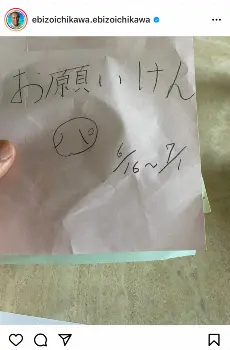 ebizoichikawa.ebizoichikawa
お願いけん
6/16〜7/1